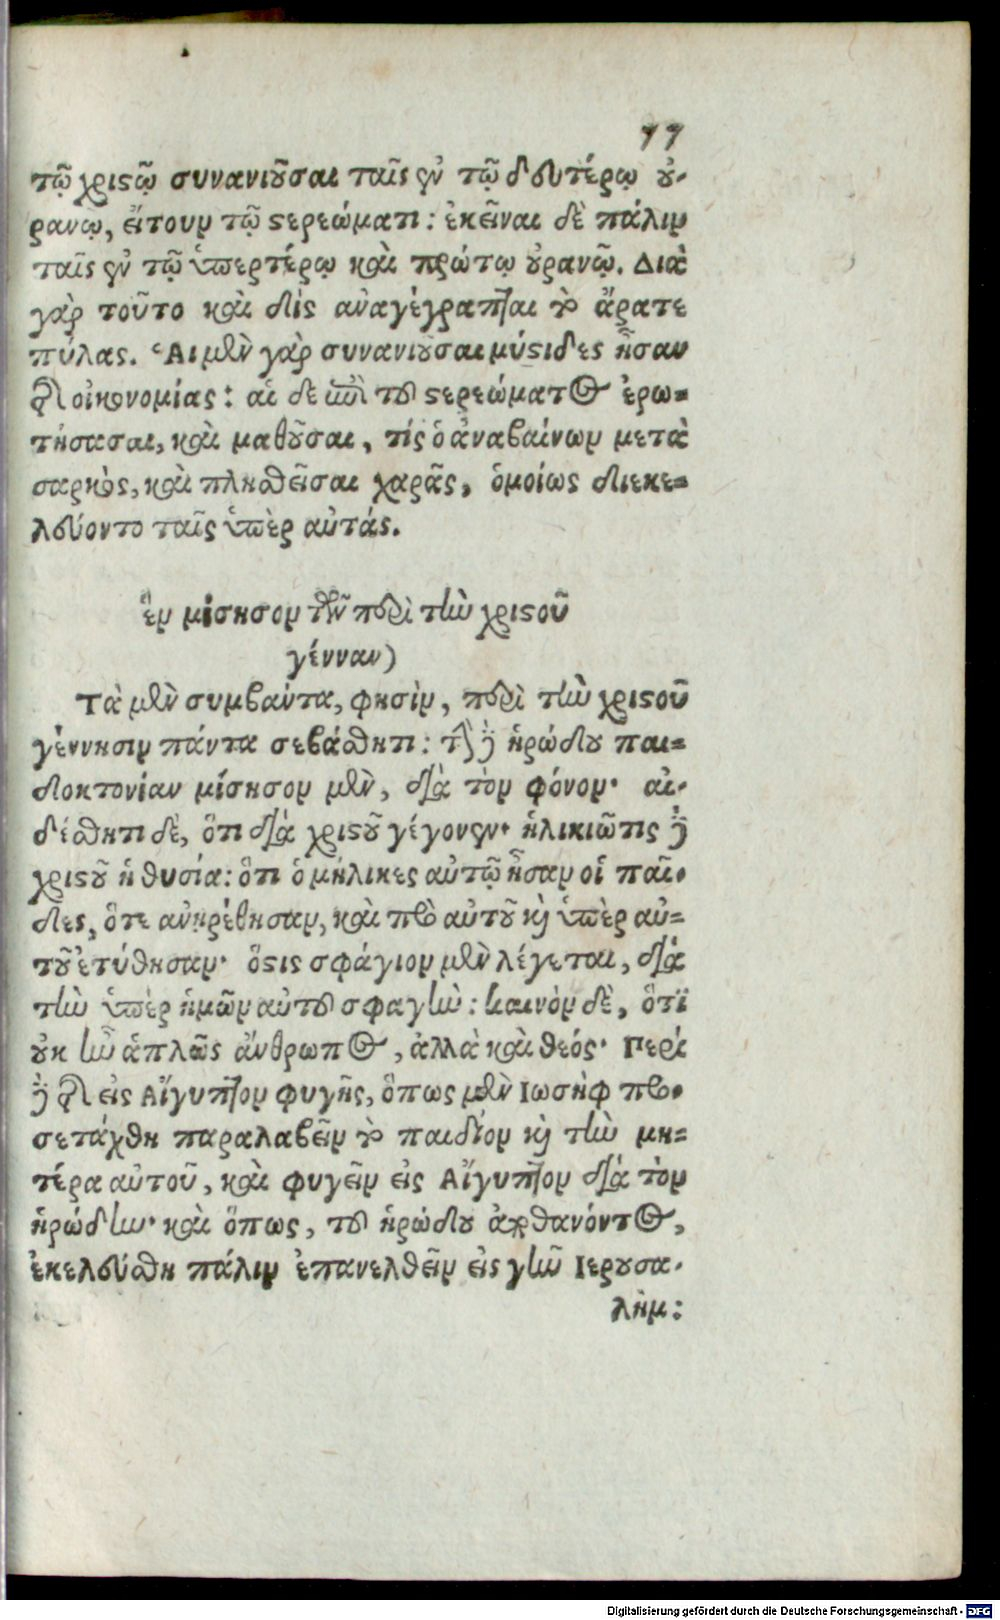 77
τῷ χριςῷ συνανιοῦσαι ταῖς ἐν τῷ δευτέρῳ οὐ-
ρανῷ, εἴτουν τῷ ςερεώματι: ἐκεῖναι δὲ πάλιν
ταῖς ἐν τῷ ὑπερτέρῳ καὶ πρώτῳ οὐρανῷ. Διὰ
γὰρ τοῦτο καὶ δὶς ἀναγέγραπται τὸ ἄρατε
πύλας. Ἁι μὲν γὰρ συνανιοῦσαι μύςιδες ἦσαν
τῆς οἰκονομίας: αἱ δε ἐπὶ τοῦ ςερεώματος ἐρω=
τήσασαι, καὶ μαθοῦσαι, τίς ὁ ἀναβαίνων μετὰ
σαρκὸς, καὶ πλησθεῖσαι χαρᾶς, ὁμοίως διεκε=
λεύοντο ταῖς ὑπὲρ αὐτάς.
ἓν μίσησον τῶν περὶ τὴν χριςοῦ
γένναν)
Τὰ μὲν συμβάντα, φησὶν, περὶ τὴν χριςοῦ
γέννησιν πάντα σεβάσθητι: τὴν δὲ ἡρώδου παι=
δοκτονίαν μίσησον μὲν, διὰ τὸν φόνον· αἰ-
δέσθητι δὲ, ὅτι διὰ χριςοῦ γέγονεν· ἡλικιῶτις δὲ
χριςοῦ ἡ θυσία: ὅτι ὁμήλικες αὐτῷ ἦσαν οἱ παῖ-
δες, ὅτε ἀνῃρέθησαν, καὶ πρὸ αὐτοῦ καὶ ὑπὲρ αὐ=
τοῦ ἐτύθησαν· ὅςις σφάγιον μὲν λέγεται, διὰ
τὴν ὑπὲρ ἡμῶν αὐτοῦ σφαγὴν: καινὸν δὲ, ὅτϊ
οὐκ ἦν ἁπλῶς ἄνθρωπος, ἀλλὰ καὶ θεός· Περὶ
δὲ τῆς εἰς Αἴγυπτον φυγῆς, ὅπως μὲν Ιωσὴφ προ-
σετάχθη παραλαβεῖν τὸ παιδίον καὶ τὴν μη=
τέρα αὐτοῦ, καὶ φυγεῖν εἰς Αἴγυπτον διὰ τὸν
ἡρώδην· καὶ ὅπως, τοῦ ἡρώδου ἀποθανόντος,
ἐκελεύσθη πάλιν ἐπανελθεῖν εἰς γῆν Ιερουσα-
λήμ:
Digitalisierung gefördert durch die Deutsche Forschungsgemeinschaft - DFG